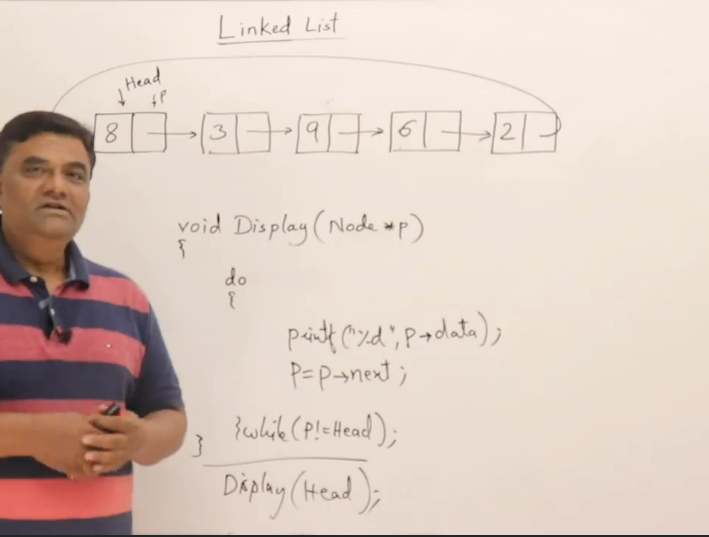 Linked List
Head
P
8 3 9 6 2
void Display(Node *p)
{
do
{
printf("%d", p→data);
P=p→next;
}while(P!=Head);
}
Display(Head);